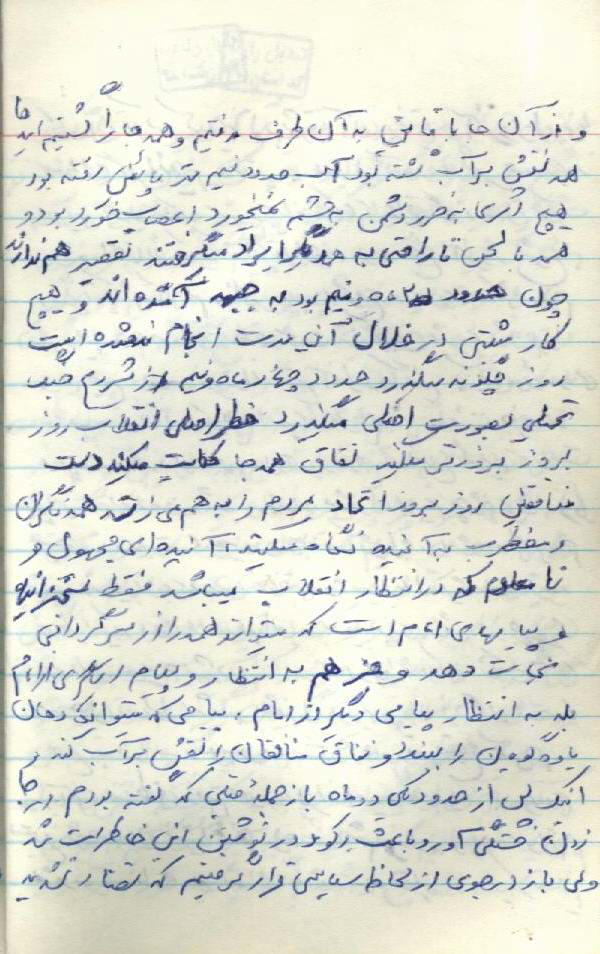 و از آن جا با قایق به آن طرف رفتیم و همه جا را گشتیم اینجا
همه نقش بر آب شده بود آب حدود نیم متر پائین رفته بود
هیچ اثری به ضرر دشمن به چشم نمیخورد اعصاب خورد بود و
همه با لحن ناراحتی به همدیگر ایراد میگرفتند تقصیر هم ندارند
چون حدود ماه ونیم بود به جبهه آمده اند و هیچ
کار مثبتی در خلال این مدت انجام نشده است
روز چگونه میگذرد حدود چهار ماه ونیم از شروع جنگ
تحمیلی بصورت اصلی میگذرد خطر اصلی انقلاب روز
بروز بزرگتر میشود نفاق همه جا حکایت میکند دست
منافقین روز بروز اتحاد مردم را به هم می زند همه نگران
و مضطرب به آینده نگاه میکنند، آینده ای مجهول و
نا معلوم که در انتظار انقلاب میباشد فقط
و پیامهای امام است که میتواند همه را از سرگردانی
نجات دهد و هنوز هم به انتظار و پیام امام
بله به انتظار پیامی دیگر از امام، پیامی که میتواند دهان
یاوه گویان را ببندد و نفاق منافقان را نقش بر آب کند و
اینک پس از حدود یکی دو ماه باز جمله قبلی که گفته بودم اینجا
زدن خستگی آورد و باعث رکود در نوشتن این خاطرات شد
ولی باز در جوی از لحاظ سیاسی قرار گرفتیم که